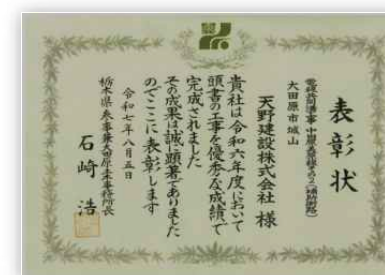 表彰状
大田原市城山
天野建設株式会社 様
貴社は令和六年度において
頭書の工事を優秀な成績で
完成されました
その成果は誠に顕著でありました
のでここに表彰します
令和七年八月五日
栃木県大田原土木事務所長
石崎 浩